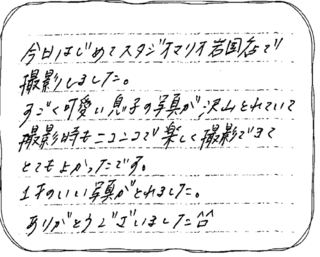 今日はじめてスタジオマリオ岩国店で
撮影しました。
すごく可愛い息子の写真が沢山とれていて
撮影時もニコニコで楽しく撮影できて
とてもよかったです。
1才のいい写真がとれました。
ありがとうございました^^